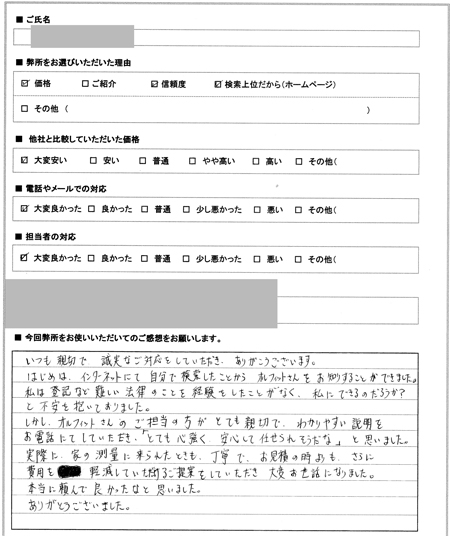 ■ ご氏名
■ 弊所をお選びいただいた理由
☑ 価格 □ ご紹介 ☑ 信頼度 ☑ 検索上位だから(ホームページ)
□ その他 ( )
■ 他社と比較していただいた価格
☑ 大変安い □ 安い □ 普通 □ やや高い □ 高い □ その他(
■ 電話やメールでの対応
☑ 大変良かった □ 良かった □ 普通 □ 少し悪かった □ 悪い □ その他(
■ 担当者の対応
☑ 大変良かった □ 良かった □ 普通 □ 少し悪かった □ 悪い □ その他(
■ 今回弊所をお使いいただいてのご感想をお願いします。
いつも親切で 誠実なご対応をしていただき、ありがとうございます。
はじめは、インターネットにて 自分で検索したことから オルフィットさんを お知りすることができました。
私は登記など難しい 法律のことを 経験をしたことがなく、私にできるのだろうか?
と不安を抱いておりました。
しかし、オルフィットさんの ご担当の方が とても親切で、わかりやすい説明を
お電話にてしていただき、「とても心強く、安心して任せられそうだな」と思いました。
実際に、家の測量に来られたときも、丁寧で、お見積の時よりも、さらに
費用を 軽減していただけるご提案をしていただき 大変お世話になりました。
本当に頼んで良かったなと思いました。
ありがとうございました。